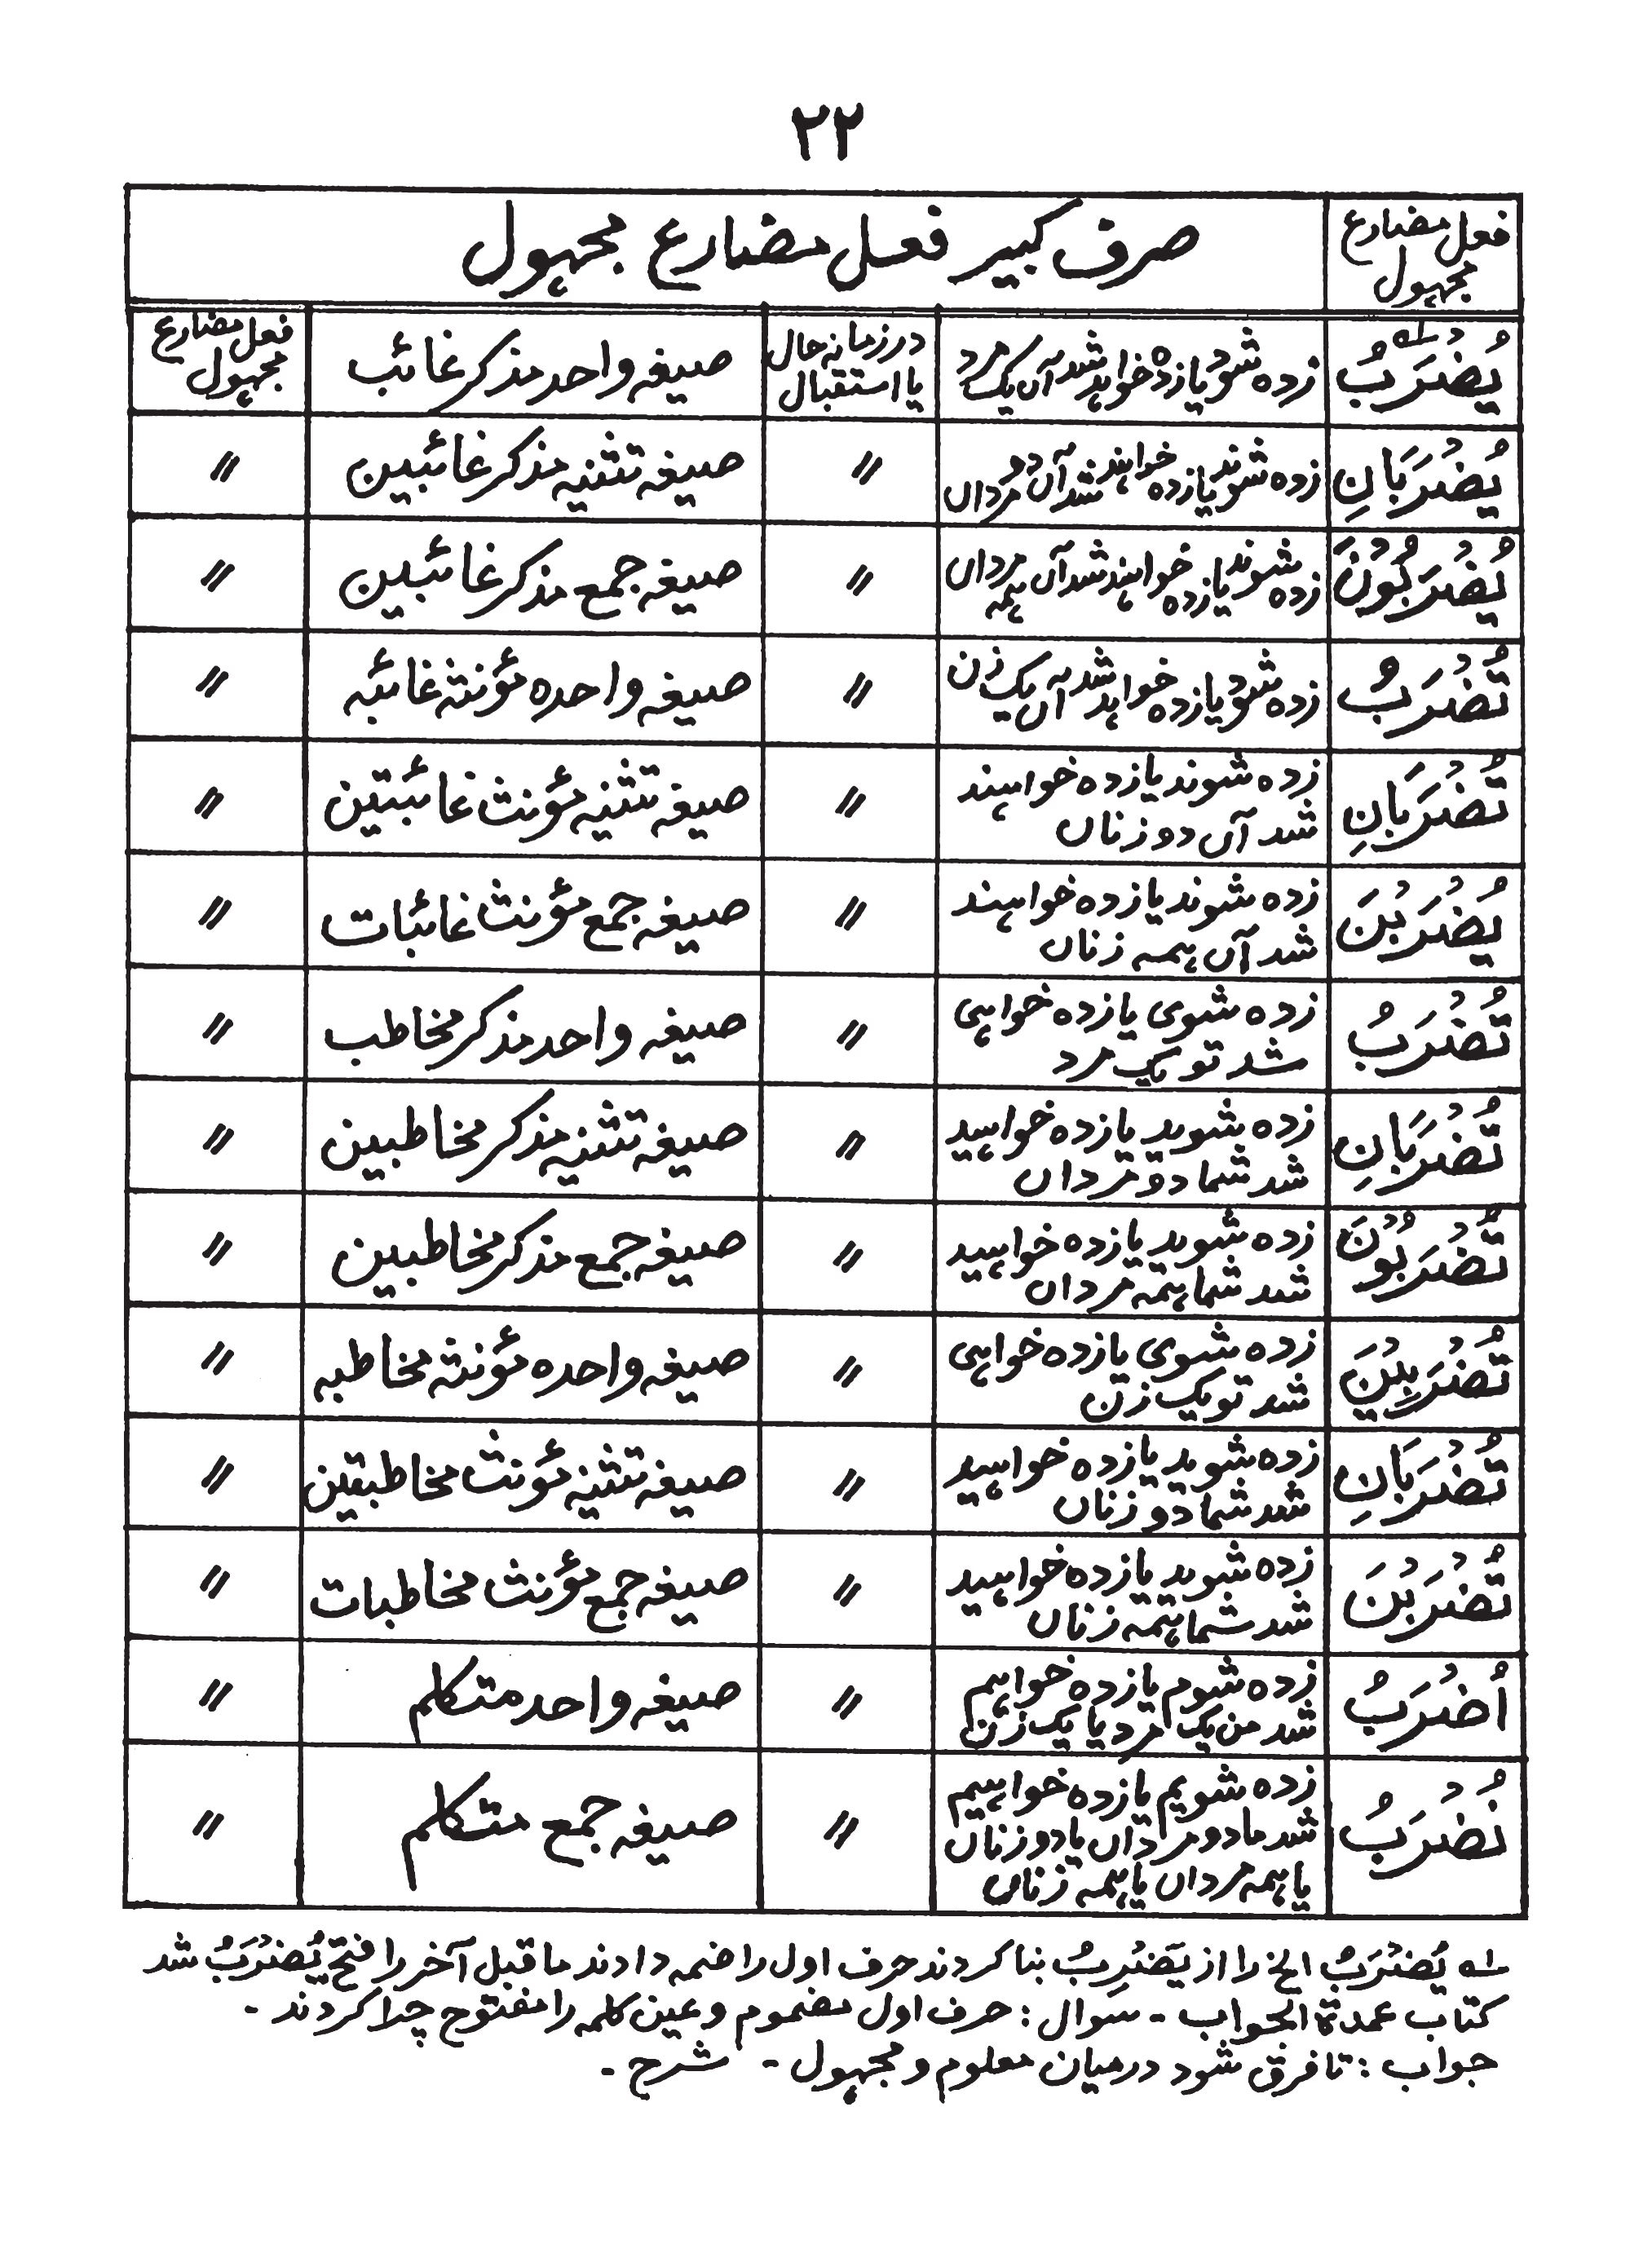 ۲۲
فعل مضارع مجہول
صرف کبیر فعل مضارع مجہول
یُضْرَبُ ۱ہ
زدہ شود یا زدہ خواہد شد آں یک مرد
در زمانہ حال یا استقبال
صیغہ واحد مذکر غائب
فعل مضارع مجہول
یُضْرَبَانِ
زدہ شوند یا زدہ خواہند شد آں دو مرداں
〃
صیغہ تثنیہ مذکر غائبین
〃
یُضْرَبُوْنَ
زدہ شوند یا زدہ خواہند شد آں ہمہ مرداں
〃
صیغہ جمع مذکر غائبین
〃
تُضْرَبُ
زدہ شود یا زدہ خواہد شد آں یک زن
〃
صیغہ واحدہ مؤنثہ غائبہ
〃
تُضْرَبَانِ
زدہ شوند یا زدہ خواہند
شد آں دو زناں
〃
صیغہ تثنیہ مؤنث غائبتین
〃
یُضْرَبْنَ
زدہ شوند یا زدہ خواہند
شد آں ہمہ زناں
〃
صیغہ جمع مؤنث غائبات
〃
تُضْرَبُ
زدہ شوی یا زدہ خواہی
شد تو یک مرد
〃
صیغہ واحد مذکر مخاطب
〃
تُضْرَبَانِ
زدہ شوید یا زدہ خواہید
شد شما دو مرداں
〃
صیغہ تثنیہ مذکر مخاطبین
〃
تُضْرَبُوْنَ
زدہ شوید یا زدہ خواہید
شد شما ہمہ مرداں
〃
صیغہ جمع مذکر مخاطبین
〃
تُضْرَبِیْنَ
زدہ شوی یا زدہ خواہی
شد تو یک زن
〃
صیغہ واحدہ مؤنثہ مخاطبہ
〃
تُضْرَبَانِ
زدہ شوید یا زدہ خواہید
شد شما دو زناں
〃
صیغہ تثنیہ مؤنث مخاطبتین
〃
تُضْرَبْنَ
زدہ شوید یا زدہ خواہید
شد شما ہمہ زناں
〃
صیغہ جمع مؤنث مخاطبات
〃
اُضْرَبُ
زدہ شوم یا زدہ خواہم
شد من یک مرد یا یک زن
〃
صیغہ واحد متکلم
〃
نُضْرَبُ
زدہ شویم یا زدہ خواہیم
شد ما دو مرداں یا دو زناں
یا ہمہ مرداں یا ہمہ زناں
〃
صیغہ جمع متکلم
〃
۱ہ یُضْرَبُ الخ را از یَضْرِبُ بنا کردند حرف اول را ضمہ دادند ما قبل آخر را فتح یُضْرَبُ شد
کتاب عمدۃ الجواب - سوال : حرف اول مضموم و عین کلمہ را مفتوح چرا کردند -
جواب : تا فرق شود درمیان معلوم و مجہول - شرح -